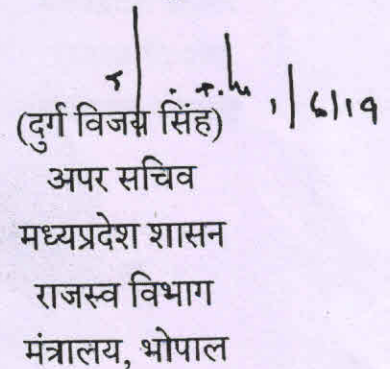 1/6/19
(दुर्ग विजय सिंह)
अपर सचिव
मध्यप्रदेश शासन
राजस्व विभाग
मंत्रालय, भोपाल